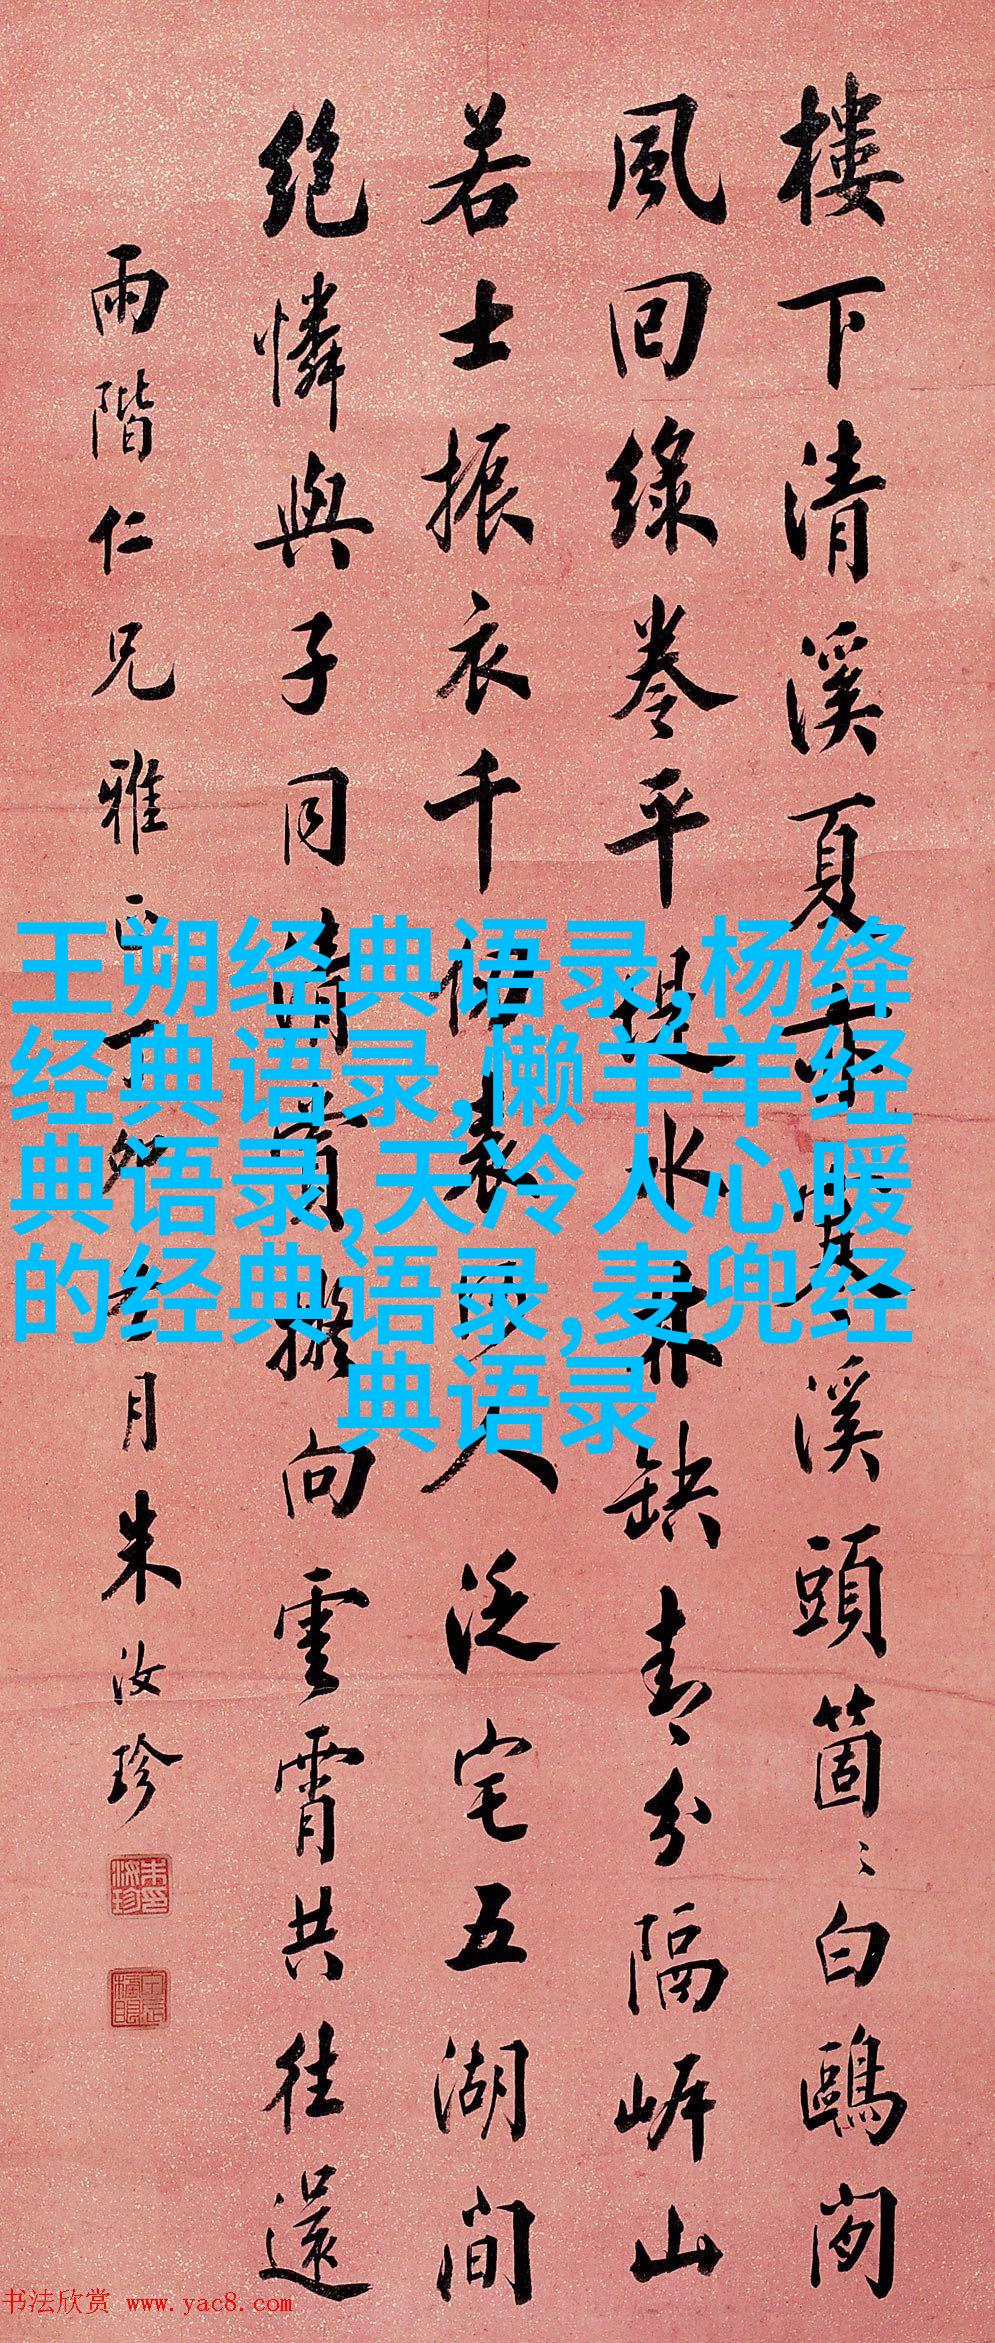 樓下清溪夏亦寒溪頭箇〻白鷗閑
風回綠卷平堤水缺青分隔岸山
若士振衣千仞表何人泛宅五湖間
絕憐與子同清賞擬向雲霄共往還
雨階仁兄雅正丁卯月朱汝珍
王朔经典语录,杨绛
经典语录,懒羊羊经
典语录,天冷人心暖
的经典语录,麦兜经
典语录
书法欣赏 www.yac8.com